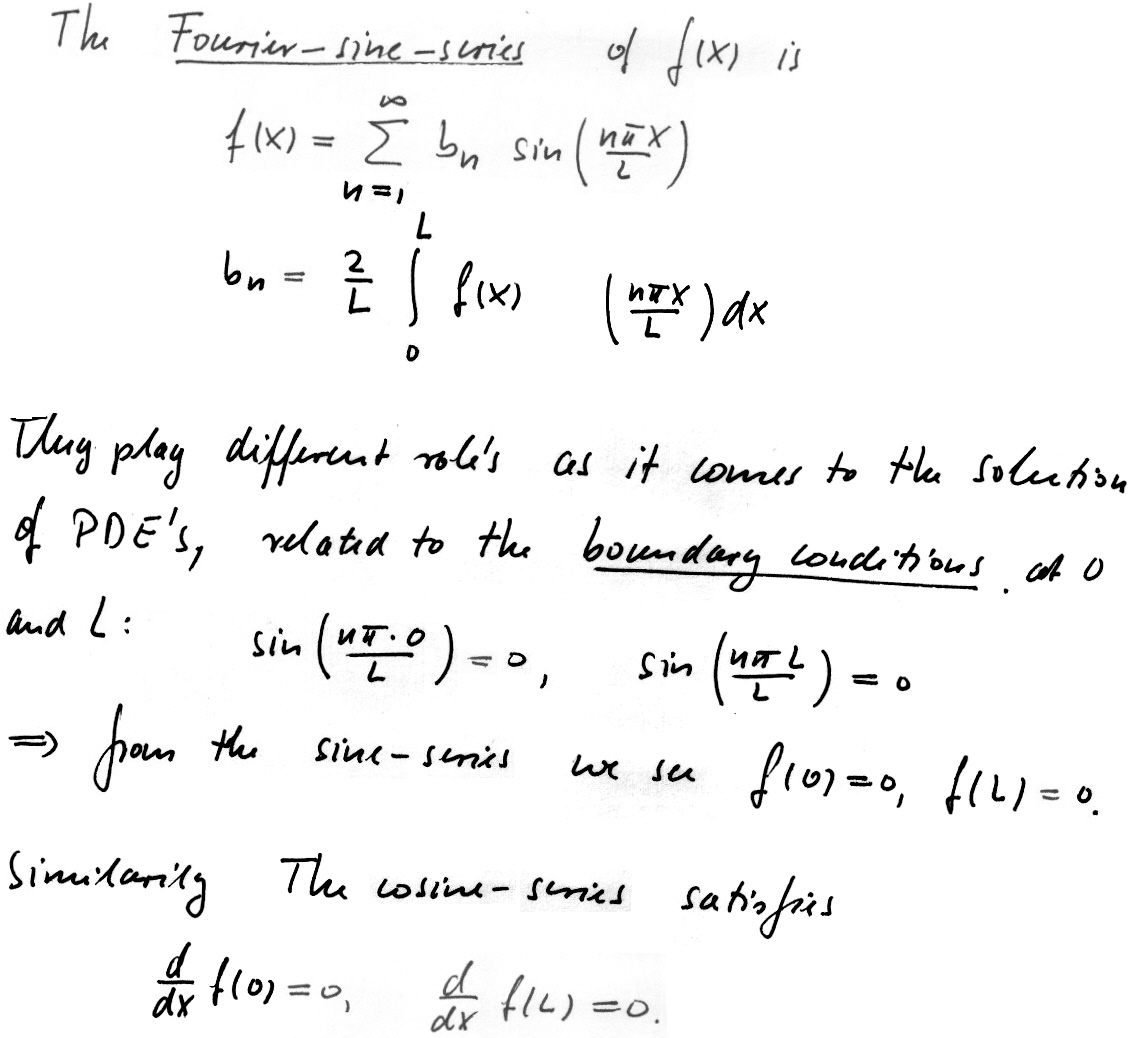 The Fourier-sine-series of f(x) is
f(x) = ∑_{n=1}^{∞} b_n sin(nπx/L)
b_n = 2/L ∫_0^L f(x) (nπx/L) dx
They play different role's as it comes to the solution
of PDE's, related to the boundary conditions. at 0
and L: sin(nπ·0/L) = 0, sin(nπL/L) = 0
⇒ from the sine-series we see f(0)=0, f(L)=0.
Similarily The cosine-series satisfies
d/dx f(0)=0, d/dx f(L)=0.